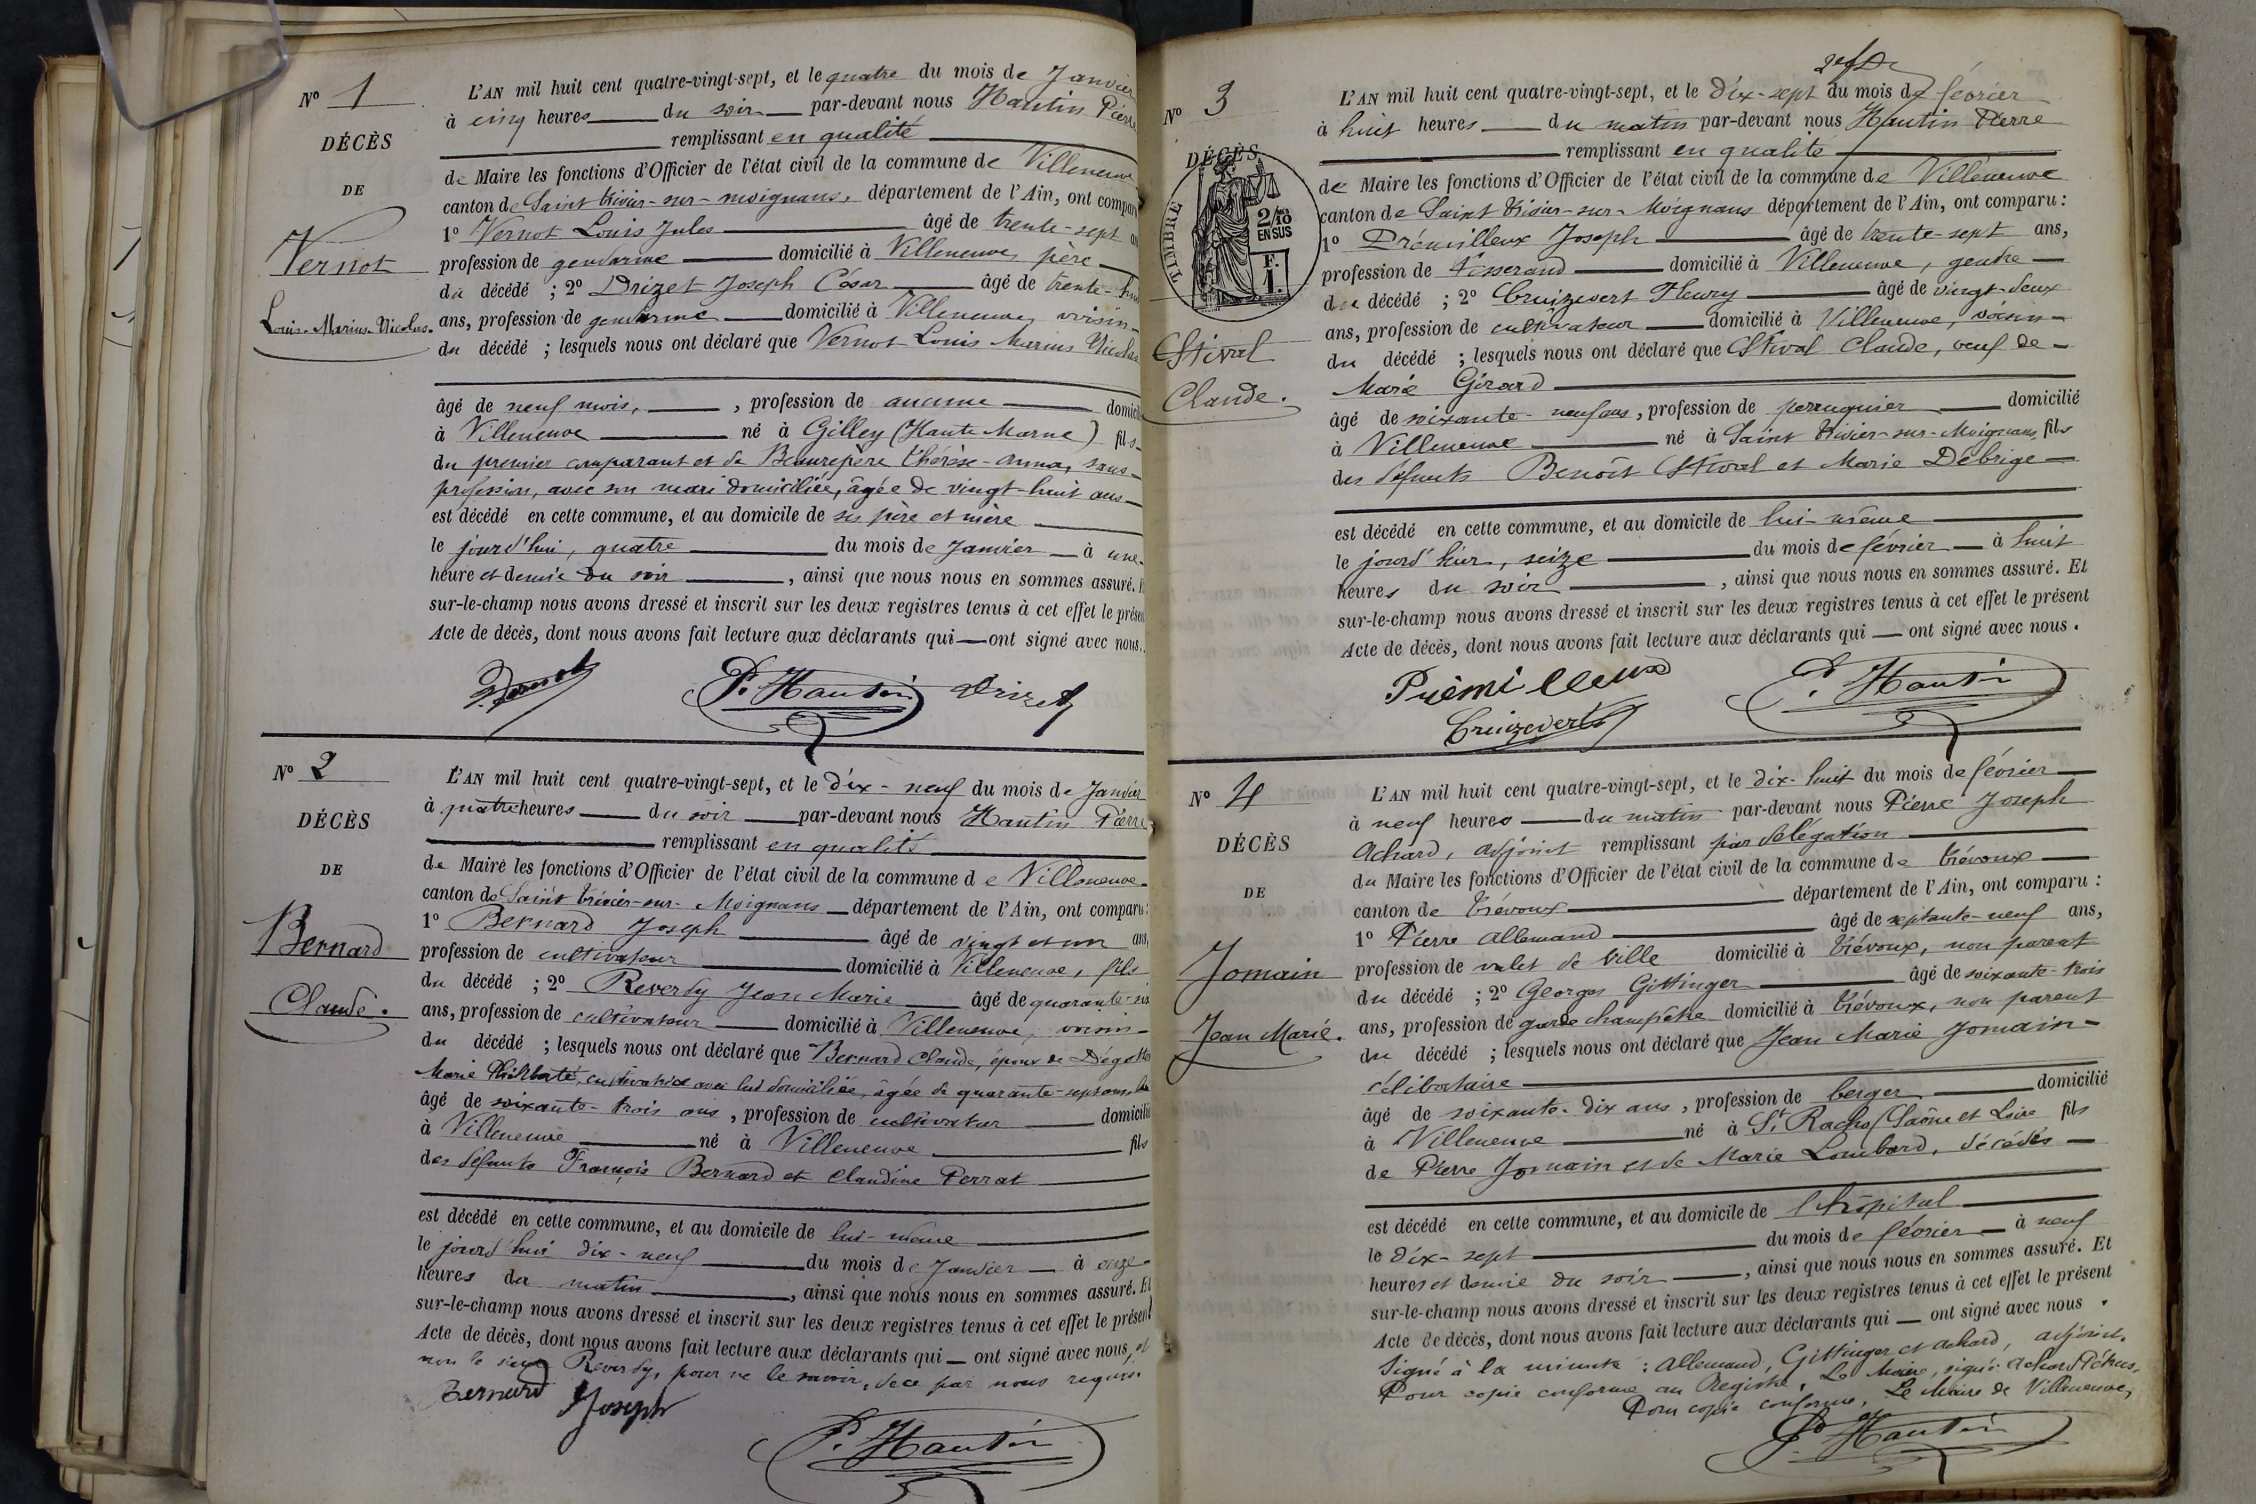 Nº 1
DÉCÈS
DE
Vernot
Louis-Marius-Nicolas.
L'AN mil huit cent quatre-vingt-sept, et le quatre du mois de Janvier
à cinq heures du soir par-devant nous Hautin Pierre
remplissant en qualité
de Maire les fonctions d'Officier de l'état civil de la commune de Villeneuve
canton de Saint Trivier-sur-moignans, département de l'Ain, ont comparu
1º Vernot Louis Jules âgé de trente-sept
profession de gendarme domicilié à Villeneuve, père
du décédé ; 2º Drizet Joseph César âgé de trente-
ans, profession de gendarme domicilié à Villeneuve, voisin
du décédé ; lesquels nous ont déclaré que Vernot Louis Marius Nicolas
âgé de neuf mois, , profession de aucune domicilié
à Villeneuve né à Gilley (Haute Marne) fils
du premier comparant et de Beaurepère Thérèse-Anna, sans
profession, avec son mari domiciliée, âgée de vingt-huit ans
est décédé en cette commune, et au domicile de ses père et mère
le jourd'hui, quatre du mois de Janvier à une
heure et demie du soir , ainsi que nous nous en sommes assuré.
sur-le-champ nous avons dressé et inscrit sur les deux registres tenus à cet effet le présent
Acte de décès, dont nous avons fait lecture aux déclarants qui ont signé avec nous.
Vernot P. Hautin Drizet
Nº 2
DÉCÈS
DE
Bernard
Claude.
L'AN mil huit cent quatre-vingt-sept, et le dix-neuf du mois de Janvier
à quatre heures du soir par-devant nous Hautin Pierre
remplissant en qualité
de Maire les fonctions d'Officier de l'état civil de la commune de Villeneuve
canton de Saint Trivier-sur-Moignans département de l'Ain, ont comparu :
1º Bernard Joseph âgé de vingt et un ans,
profession de cultivateur domicilié à Villeneuve, fils
du décédé ; 2º Reverdy Jean Marie âgé de quarante-six
ans, profession de cultivateur domicilié à Villeneuve, voisin
du décédé ; lesquels nous ont déclaré que Bernard Claude, époux de
Marie Philiberte, cultivatrice avec lui domiciliée, âgée de quarante-sept ans
âgé de soixante-trois ans , profession de cultivateur domicilié
à Villeneuve né à Villeneuve fils
des défunts François Bernard et Claudine Perrat
est décédé en cette commune, et au domicile de lui-même
le jourd'hui dix-neuf du mois de Janvier à onze
heures du matin , ainsi que nous nous en sommes assuré. Et
sur-le-champ nous avons dressé et inscrit sur les deux registres tenus à cet effet le présent
Acte de décès, dont nous avons fait lecture aux déclarants qui ont signé avec nous, et
non le sieur Reverdy, pour ne le savoir, de ce par nous requis.
Bernard Joseph
P. Hautin
Nº 3
DÉCÈS
TIMBRE
2/10
EN SUS
F.
1.
Stival
Claude.
L'AN mil huit cent quatre-vingt-sept, et le dix-sept du mois de février
à huit heures du matin par-devant nous Hautin Pierre
remplissant en qualité
de Maire les fonctions d'Officier de l'état civil de la commune de Villeneuve
canton de Saint Trivier-sur-Moignans département de l'Ain, ont comparu :
1º Prémilleux Joseph âgé de trente-sept ans,
profession de Tisserand domicilié à Villeneuve, gendre
du décédé ; 2º Cruizevert Fleury âgé de vingt-deux
ans, profession de cultivateur domicilié à Villeneuve, voisin
du décédé ; lesquels nous ont déclaré que Stival Claude, veuf de
Marie Gérard
âgé de soixante-neuf ans, profession de perruquier domicilié
à Villeneuve né à Saint Trivier-sur-Moignans, fils
des défunts Benoît Stival et Marie Debrige
est décédé en cette commune, et au domicile de lui-même
le jourd'hier, seize du mois de février à huit
heures du soir , ainsi que nous nous en sommes assuré. Et
sur-le-champ nous avons dressé et inscrit sur les deux registres tenus à cet effet le présent
Acte de décès, dont nous avons fait lecture aux déclarants qui ont signé avec nous.
Prémilleux P. Hautin
Cruizevert
Nº 4
DÉCÈS
DE
Jomain
Jean Marie.
L'AN mil huit cent quatre-vingt-sept, et le dix-huit du mois de février
à neuf heures du matin par-devant nous Pierre Joseph
Achard, adjoint remplissant par délégation
du Maire les fonctions d'Officier de l'état civil de la commune de Trévoux
canton de Trévoux département de l'Ain, ont comparu :
1º Pierre Allemand âgé de septante-neuf ans,
profession de valet de ville domicilié à Trévoux, non parent
du décédé ; 2º Georges Gittinger âgé de soixante-trois
ans, profession de garde champêtre domicilié à Trévoux, non parent
du décédé ; lesquels nous ont déclaré que Jean Marie Jomain
célibataire
âgé de soixante-dix ans, profession de berger domicilié
à Villeneuve né à St Racho (Saône et Loire fils
de Pierre Jomain et de Marie Lombard, décédés
est décédé en cette commune, et au domicile de l'hôpital
le dix-sept du mois de février à neuf
heures et demie du soir , ainsi que nous nous en sommes assuré. Et
sur-le-champ nous avons dressé et inscrit sur les deux registres tenus à cet effet le présent
Acte de décès, dont nous avons fait lecture aux déclarants qui ont signé avec nous.
Signé à la minute : Allemand, Gittinger et Achard, adjoint.
Pour copie conforme au Registre, Le Maire, signé:
Pour copie conforme, Le Maire de Villeneuve,
P. Hautin